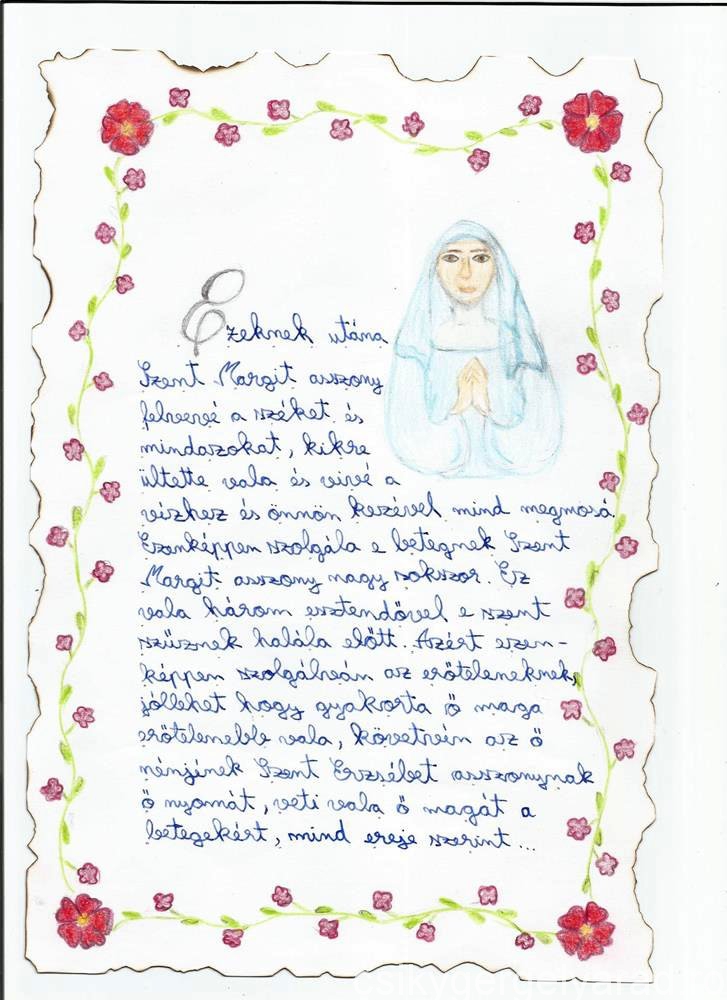 Ezeknek utána
Szent Margit asszony
felveveé a széket és
mindazokat, kikre
ültette vala és viveé a
vízhez és önnön kezével mind megmosá.
Ezenképpen szolgála e betegnek Szent
Margit asszony nagy sokszor. Ez
vala három esztendővel e szent
szűznek halála előtt. Azért ezen-
képpen szolgálván az erőteleneknek,
jóllehet hogy gyakorta ő maga
erőtelenebb vala, követvén az ő
nénjének Szent Erzsébet asszonynak
ő nyomát, veti vala ő magát a
betegekért, mind ereje szerint...